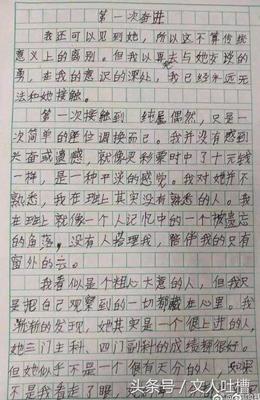 第一次奋进
我还可以见到她，所以这不算传统
意义上的离别。但我以再去与她交谈的
勇，在我的意识的深处，我已经永远无
法和她接触。
第一次接触到 纯属偶然，只是一
次简单的座位调换而已。我并没有感到
兴奋或遗憾，就像买彩票时中了十元钱
一样，是一种平淡的感觉。我对她并不
熟悉，我在班上其实没有熟悉的人。我
在班上就像一个人记忆中的一个被遗忘
的角落，没有人搭理我，陪伴我的只有
窗外的云。
我看似是个粗心大意的人，但我只
是把自己观察到的一切都藏在心里。我
渐渐的发现，她其实是一个很上进的人，
她三门主科、四门副科的成绩都很好。
但她似乎不是一个很有天分的人，如果
不是我看走了眼，
头条号／文人吐槽